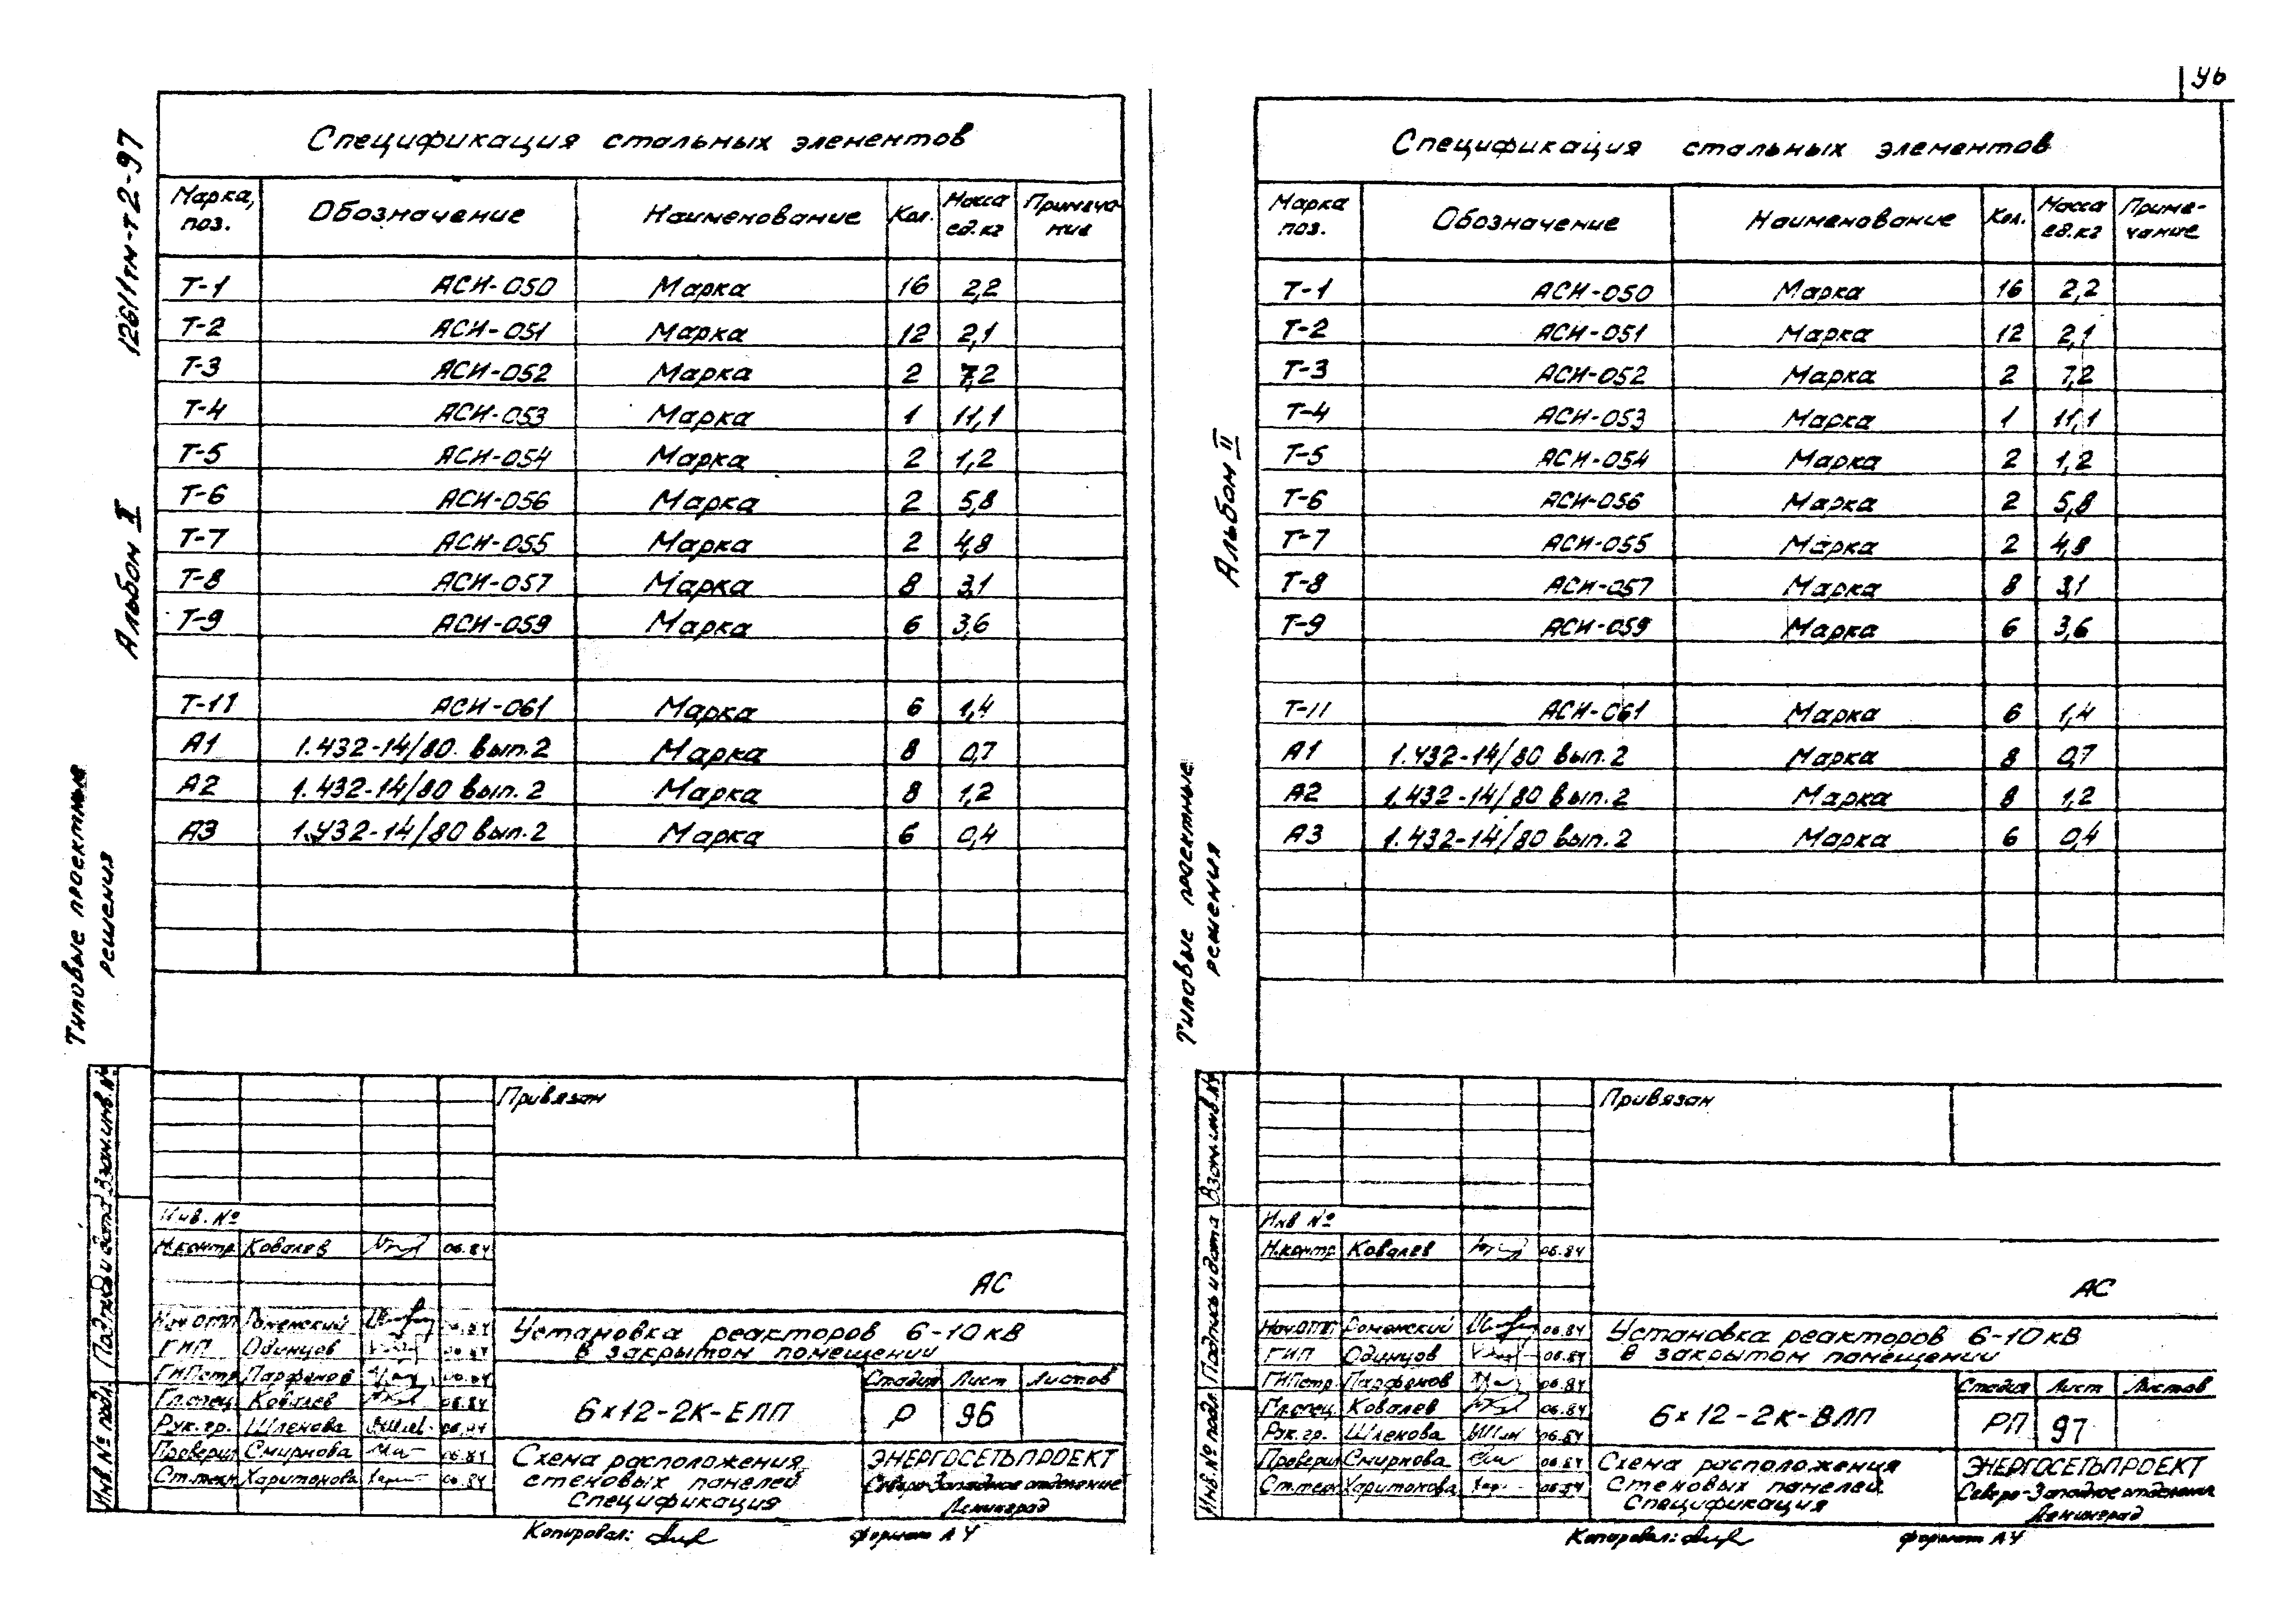 12611тм-т2-97
Альбом II
Типовые проектные
решения
Спецификация стальных элементов
Марка, поз. Обозначение Наименование Кол. Масса ед.кг Примечание
Т-1 АСИ-050 Марка 16 2,2
Т-2 АСИ-051 Марка 12 2,1
Т-3 АСИ-052 Марка 2 7,2
Т-4 АСИ-053 Марка 1 11,1
Т-5 АСИ-054 Марка 2 1,2
Т-6 АСИ-056 Марка 2 5,8
Т-7 АСИ-055 Марка 2 4,8
Т-8 АСИ-057 Марка 8 3,1
Т-9 АСИ-059 Марка 6 3,6
Т-11 АСИ-061 Марка 6 1,4
А1 1.432-14/80. вып.2 Марка 8 0,7
А2 1.432-14/80 вып.2 Марка 8 1,2
А3 1.432-14/80 вып.2 Марка 6 0,4
Взам.инв.№
Подпись и дата
Инв.№ подл.
Привязан
Инв.№
Н.контр. Ковалев 06.84
АС
Нач.ОТП Роменский 06.84
ГИП Одинцов 06.84
ГИПстр. Парфенов 06.84
Гл.спец. Ковалев 06.84
Рук.гр. Шленова 06.84
Проверил Смирнова 06.84
Ст.техн. Харитонова 06.84
Установка реакторов 6-10кВ
в закрытом помещении
6х12-2К-ЕЛП
Стадия Лист Листов
Р 96
Схема расположения
стеновых панелей
Спецификация
ЭНЕРГОСЕТЬПРОЕКТ
Северо-Западное отделение
Ленинград
Копировал:
формат А4
46
Альбом II
Типовые проектные
решения
Спецификация стальных элементов
Марка поз. Обозначение Наименование Кол. Масса ед.кг Приме-чание
Т-1 АСИ-050 Марка 16 2,2
Т-2 АСИ-051 Марка 12 2,1
Т-3 АСИ-052 Марка 2 7,2
Т-4 АСИ-053 Марка 1 11,1
Т-5 АСИ-054 Марка 2 1,2
Т-6 АСИ-056 Марка 2 5,8
Т-7 АСИ-055 Марка 2 4,8
Т-8 АСИ-057 Марка 8 3,1
Т-9 АСИ-059 Марка 6 3,6
Т-11 АСИ-061 Марка 6 1,4
А1 1.432-14/80 вып.2 Марка 8 0,7
А2 1.432-14/80 вып.2 Марка 8 1,2
А3 1.432-14/80 вып.2 Марка 6 0,4
Взам.инв.№
Подпись и дата
Инв.№ подл.
Привязан
Инв №
Н.контр. Ковалев 06.84
АС
Нач.ОТП Роменский 06.84
ГИП Одинцов 06.84
ГИПстр. Парфенов 06.84
Гл.спец. Ковалев 06.84
Рук.гр. Шленова 06.84
Проверил Смирнова 06.84
Ст.техн. Харитонова 06.84
Установка реакторов 6-10кВ
в закрытом помещении
6х12-2К-ВЛП
Стадия Лист Листов
РП 97
Схема расположения
стеновых панелей.
Спецификация
ЭНЕРГОСЕТЬПРОЕКТ
Северо-Западное отделение
Ленинград
Копировал:
формат А4